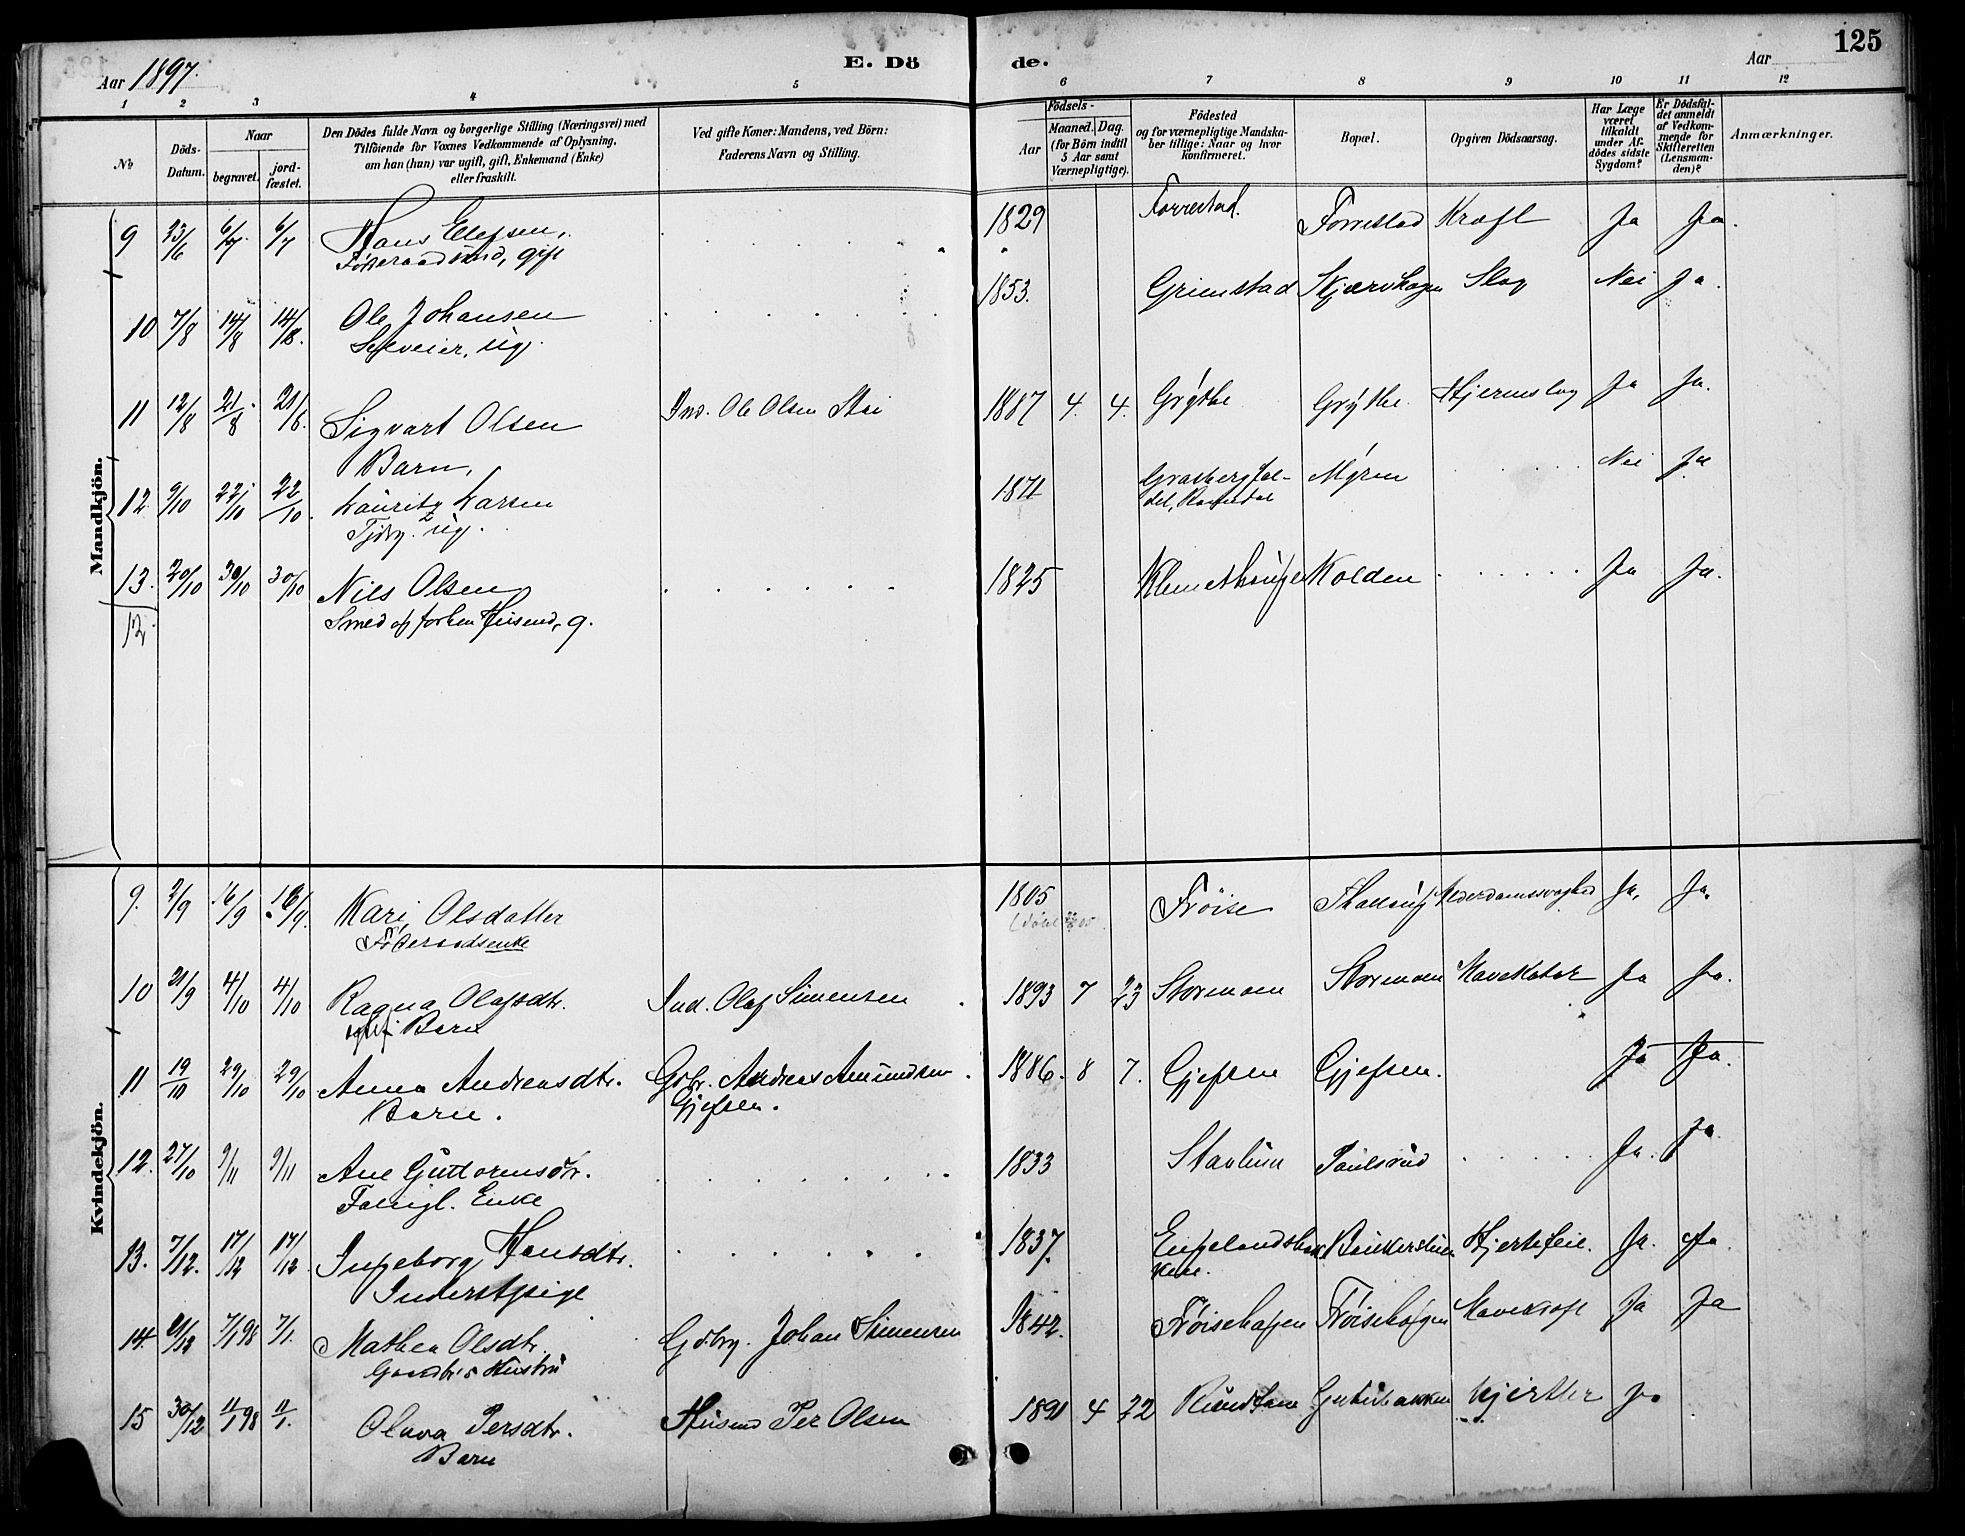 125
Aar 1897. E. Dö de. Aar
1 2 3 4 5 6 7 8 9 10 11 12
№ Döds-Datum. Naar begravet. jord-fæstet.
Den Dödes fulde Navn og borgerlige Stilling (Næringsvei) med
Tilföiende for Voxnes Vedkommende af Oplysning,
om han (hun) var ugift, gift, Enkemand (Enke)
eller fraskilt.
Ved gifte Koner: Mandens, ved Börn:
Faderens Navn og Stilling.
Födsels-
Aar Maaned. Dag.
(for Börn indtil
5 Aar samt
Værnepligtige).
Födested
og for værnepligtige Mandska-
ber tillige: Naar og hvor
konfirmeret.
Bopæl.
Opgiven Dödsaarsag.
Har Læge
været
tilkaldt
under Af-
dödes sidste
Sygdom?
Er Dödsfal-
det anmeldt
af Vedkom-
mende for
Skifteretten
(Lensman-
den)?
Anmærkninger.
Mandkjön.
9 23/6 6/7 6/7 Hans 1829 Forrestad. Forrestad Kræft Ja Ja.
gift
10 7/8 14/8 14/8. Ole Johansen 1853. Grimstad Slag Nei Ja.
Selveier, ug.
11 12/8 21/8 21/8. Sigvart Olsen Ind. Ole Olsen Stai 1887 4. 4. Grythe Grythe Hjerneslag Ja Ja.
Barn,
12 9/10 22/10 22/10. Lauritz Larsen 1871 Myren Nei Ja
ug.
13. 20/10 30/10 30/10 Nils Olsen 1825 Kolden Ja Ja.
Smed og forhen Husmd, g.
13.
Kvindekjön.
9. 2/9 16/9 16/9. Kari Olsdatter 1805 Fröise Alderdomssvaghed Ja. Ja.
Föderaadsenke
10 21/9 4/10 4/10 Ragna Olafsdtr. Ind. Olaf Simensen 1893 7 23 Stormoen Stormoen Mavekatar Ja Ja.
Barn
11 19/10 29/10 29/10 Anna Andreasdtr. Gbr. Andreas Amundsen 1886. 8 7. Gjefsen Gjefsen. Ja Ja.
Barn. Gjefsen.
12. 27/10 9/11 9/11 Ane Guttormsdtr. 1833 Paulsrud Ja. Ja.
Enke
13. 7/12. 17/12 17/12 Ingeborg Hansdtr. 1837. Hjertefeil. Ja. Ja.
Inderstpige
14. 21/12 7/1 98 7/1. Mathea Olsdtr. Gdbrg. Johan Simensen 1842. Fröisehagen Fröisehagen Mavekræft Ja Ja
Gaardbr.s Hustru
15 30/12 11/1 98 11/1. Olava Persdtr. Husmd Per Olsen 1891 4 22 Ja
Barn